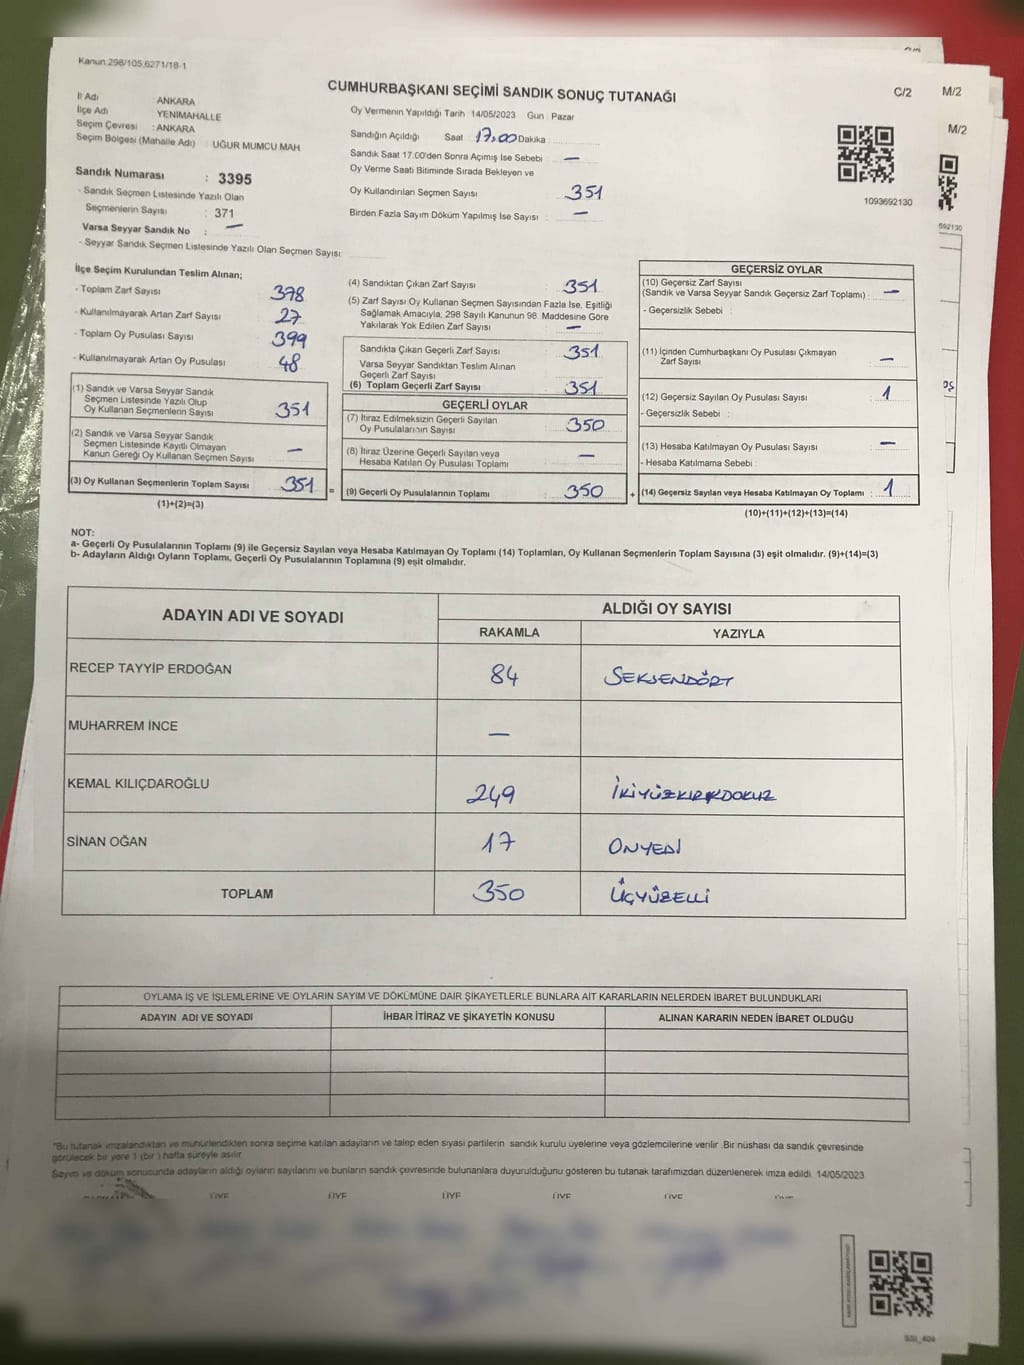 Kanun:298/105,6271/18-1
CUMHURBAŞKANI SEÇİMİ SANDIK SONUÇ TUTANAĞI
C/2
M/2
M/2
İl Adı ANKARA
İlçe Adı YENİMAHALLE
Seçim Çevresi : ANKARA
Seçim Bölgesi (Mahalle Adı) UĞUR MUMCU MAH
Oy Vermenin Yapıldığı Tarih 14/05/2023 Gün Pazar
Sandığın Açıldığı Saat 17.00 Dakika
Sandık Saat 17.00'den Sonra Açımış İse Sebebi —
Oy Verme Saati Bitiminde Sırada Bekleyen ve
Oy Kullandırılan Seçmen Sayısı : 351
Birden Fazla Sayım Döküm Yapılmış İse Sayısı : —
1093692130
692130
Sandık Numarası : 3395
- Sandık Seçmen Listesinde Yazılı Olan
Seçmenlerin Sayısı : 371
Varsa Seyyar Sandık No : —
- Seyyar Sandık Seçmen Listesinde Yazılı Olan Seçmen Sayısı:
İlçe Seçim Kurulundan Teslim Alınan;
- Toplam Zarf Sayısı 378
- Kullanılmayarak Artan Zarf Sayısı 27
- Toplam Oy Pusulası Sayısı 399
- Kullanılmayarak Artan Oy Pusulası 48
(1) Sandık ve Varsa Seyyar Sandık
Seçmen Listesinde Yazılı Olup
Oy Kullanan Seçmenlerin Sayısı 351
(2) Sandık ve Varsa Seyyar Sandık
Seçmen Listesinde Kayıtlı Olmayan
Kanun Gereği Oy Kullanan Seçmen Sayısı —
(3) Oy Kullanan Seçmenlerin Toplam Sayısı 351
(1)+(2)=(3)
=
(4) Sandıktan Çıkan Zarf Sayısı : 351
(5) Zarf Sayısı Oy Kullanan Seçmen Sayısından Fazla İse, Eşitliği
Sağlamak Amacıyla, 298 Sayılı Kanunun 98. Maddesine Göre
Yakılarak Yok Edilen Zarf Sayısı : —
Sandıkta Çıkan Geçerli Zarf Sayısı : 351
Varsa Seyyar Sandıktan Teslim Alınan
Geçerli Zarf Sayısı
(6) Toplam Geçerli Zarf Sayısı : 351
GEÇERLİ OYLAR
(7) İtiraz Edilmeksizin Geçerli Sayılan
Oy Pusulalarının Sayısı : 350
(8) İtiraz Üzerine Geçerli Sayılan veya
Hesaba Katılan Oy Pusulası Toplamı : —
(9) Geçerli Oy Pusulalarının Toplamı : 350
+
GEÇERSİZ OYLAR
(10) Geçersiz Zarf Sayısı
(Sandık ve Varsa Seyyar Sandık Geçersiz Zarf Toplamı) : —
- Geçersizlik Sebebi :
(11) İçinden Cumhurbaşkanı Oy Pusulası Çıkmayan
Zarf Sayısı —
(12) Geçersiz Sayılan Oy Pusulası Sayısı : 1
- Geçersizlik Sebebi :
(13) Hesaba Katılmayan Oy Pusulası Sayısı : —
- Hesaba Katılmama Sebebi
(14) Geçersiz Sayılan veya Hesaba Katılmayan Oy Toplamı : 1
(10)+(11)+(12)+(13)=(14)
NOT:
a- Geçerli Oy Pusulalarının Toplamı (9) ile Geçersiz Sayılan veya Hesaba Katılmayan Oy Toplamı (14) Toplamları, Oy Kullanan Seçmenlerin Toplam Sayısına (3) eşit olmalıdır. (9)+(14)=(3)
b- Adayların Aldığı Oyların Toplamı, Geçerli Oy Pusulalarının Toplamına (9) eşit olmalıdır.
ADAYIN ADI VE SOYADI
ALDIĞI OY SAYISI
RAKAMLA YAZIYLA
RECEP TAYYİP ERDOĞAN 84 SEKSENDÖRT
MUHARREM İNCE —
KEMAL KILIÇDAROĞLU 249 İKİYÜZKIRKDOKUZ
SİNAN OĞAN 17 ONYEDİ
TOPLAM 350 ÜÇYÜZELLİ
OYLAMA İŞ VE İŞLEMLERİNE VE OYLARIN SAYIM VE DÖKÜMÜNE DAİR ŞİKAYETLERLE BUNLARA AİT KARARLARIN NELERDEN İBARET BULUNDUKLARI
ADAYIN ADI VE SOYADI İHBAR İTİRAZ VE ŞİKAYETİN KONUSU ALINAN KARARIN NEDEN İBARET OLDUĞU
*Bu tutanak imzalandıktan ve mühürlendikten sonra seçime katılan adayların ve talep eden siyasi partilerin sandık kurulu üyelerine veya gözlemcilerine verilir. Bir nüshası da sandık çevresinde
görülecek bir yere 1 (bir) hafta süreyle asılır
Sayım ve döküm sonucunda adayların aldığı oyların sayılarını ve bunların sandık çevresinde bulunanlara duyurulduğunu gösteren bu tutanak tarafımızdan düzenlenerek imza edildi. 14/05/2023
ÜYE ÜYE ÜYE ÜYE ÜYE ÜYE